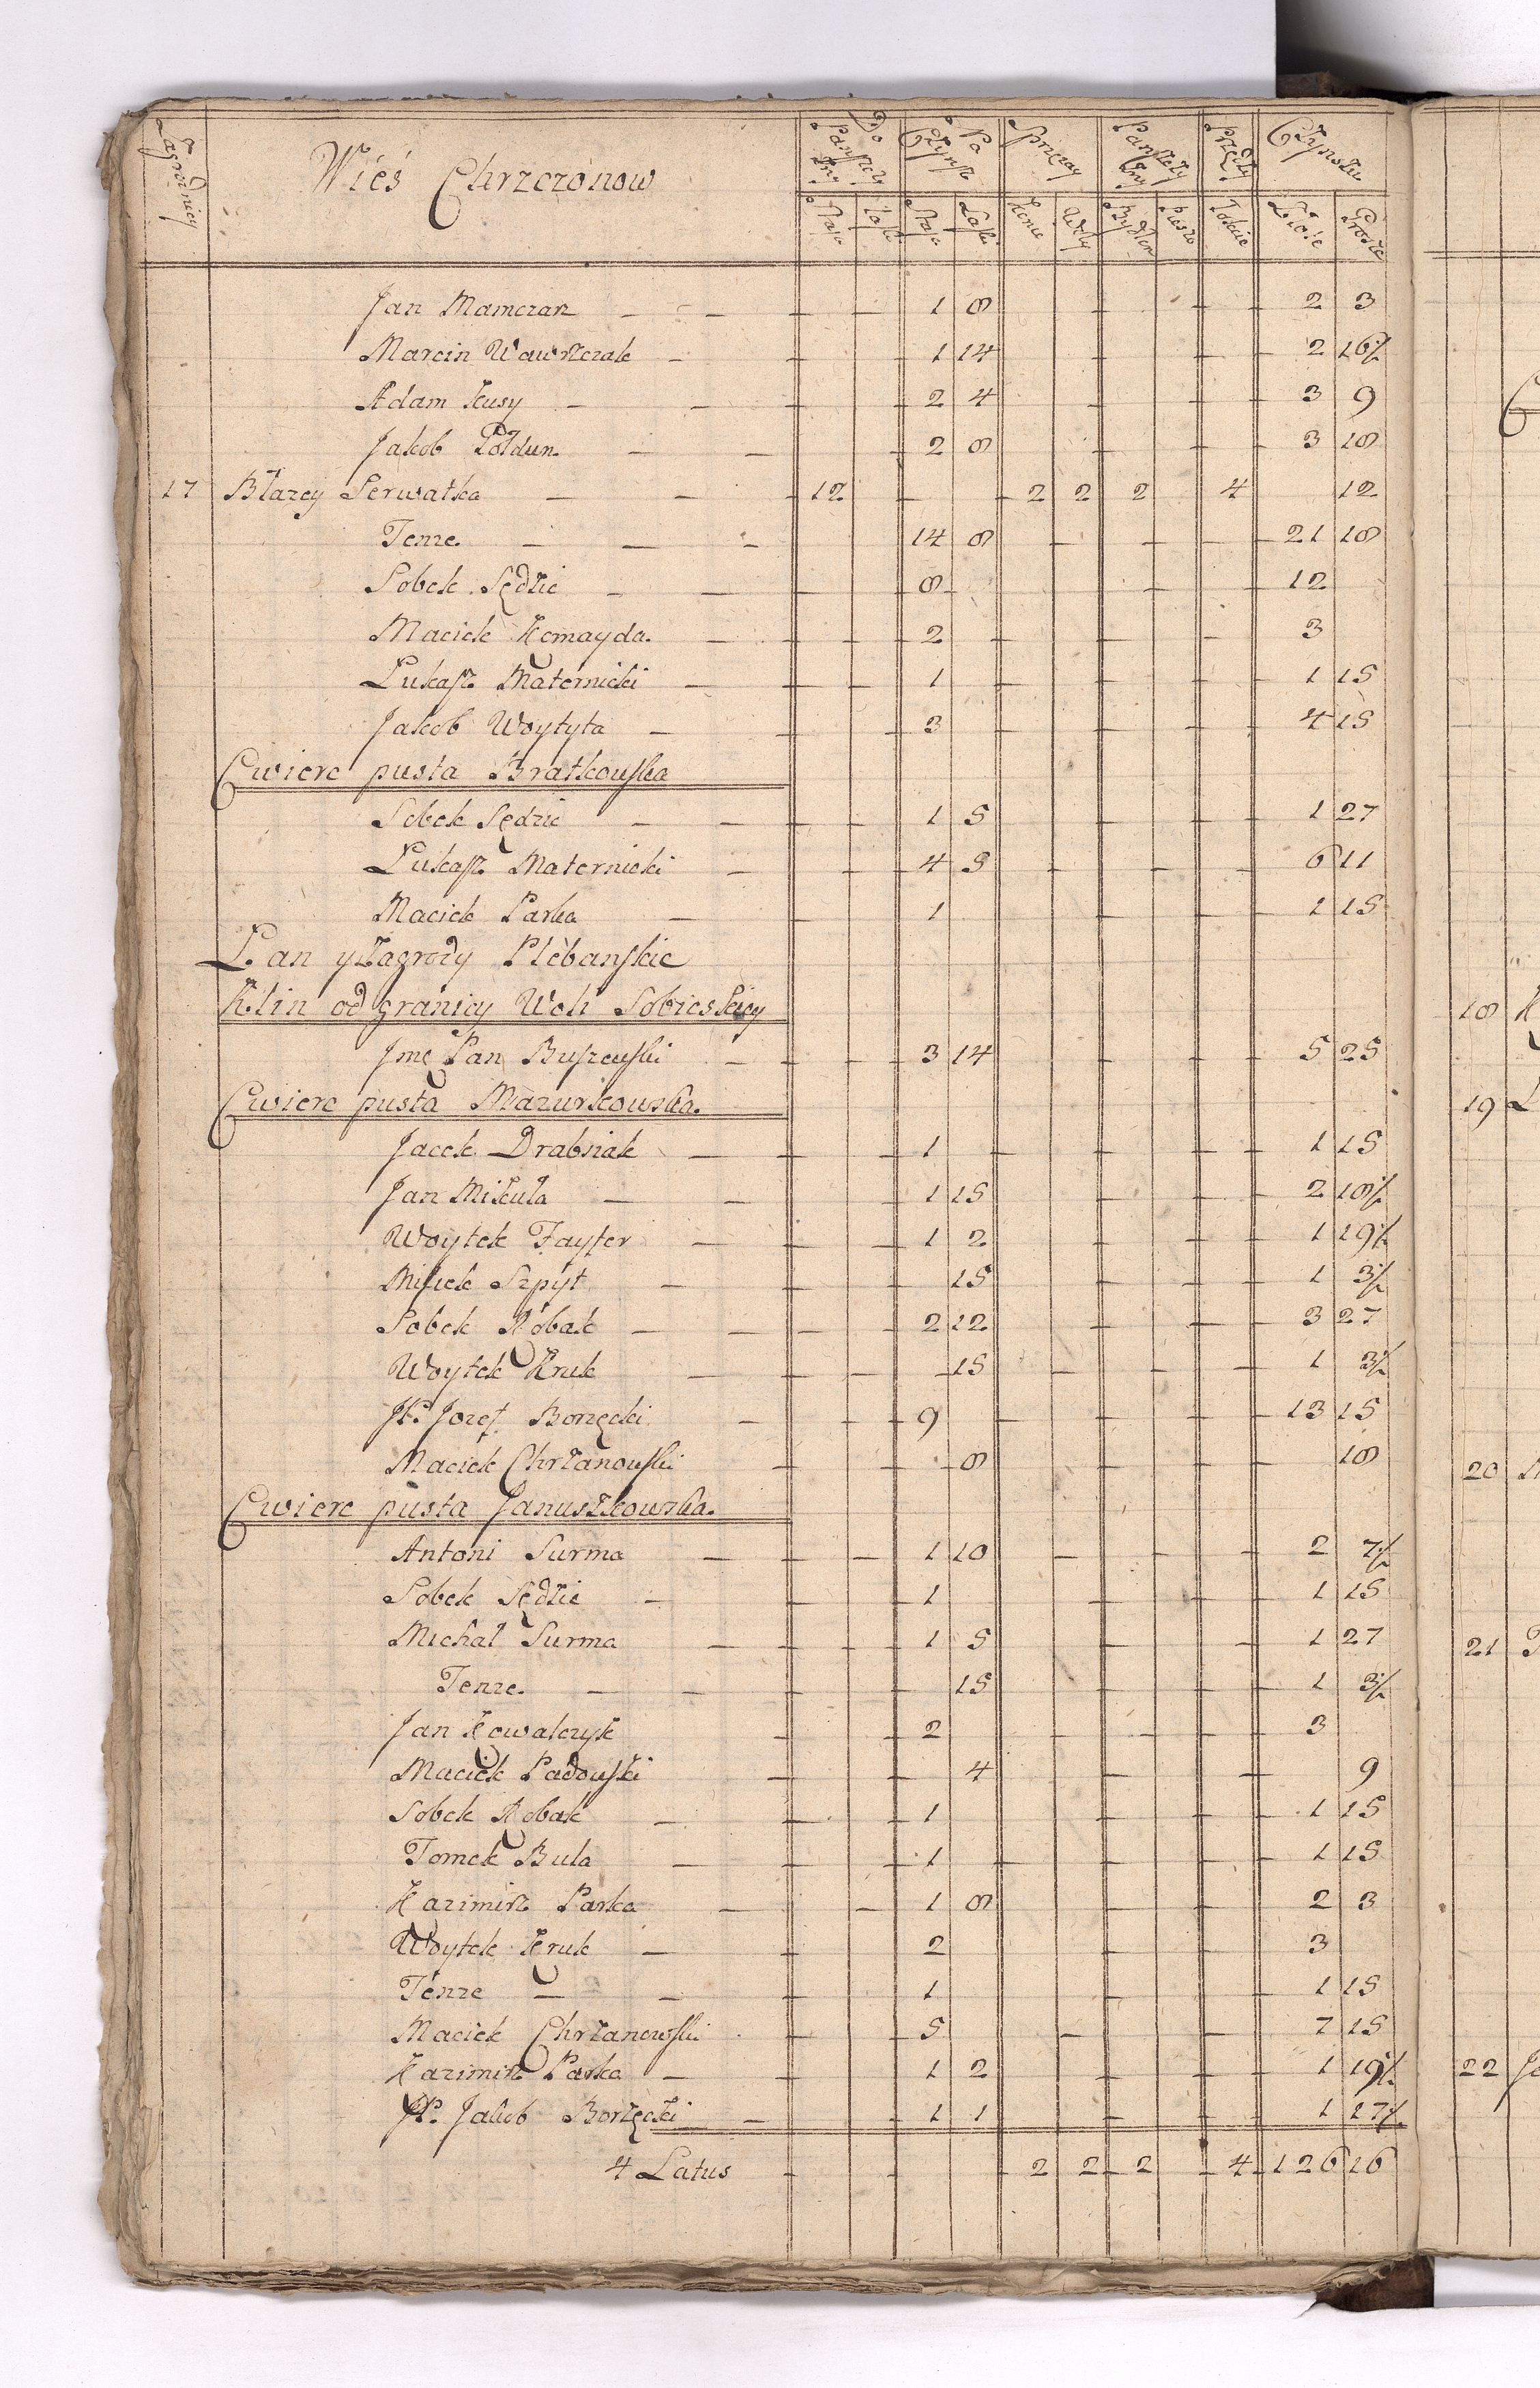 Zagrodnicy
Wieś Chrzczonow
Do Panszczyzny
Po Czynsz
Sprzezay
Panszczyzny
Przędzy
Czynszu
Staje Laski Staje Laski Konie Woły Bydłem Pieszo Łokcie Złote Grosze
Jan Mamczarz — — 1 8 2 3
Marcin Wawrzczak — 1 14 2 16½
Adam Kusy — — 2 4 3 9
Jakob Połdun — — 2 8 3 18
17 Błazey Serwatka — — 12 2 2 2 4 12
Tenze — — — 14 8 21 18
Sobek Sędzic — — 8 12
Maciek Komayda — 2 3
Łukasz Maternicki — 1 1 15
Jakob Woytyta — 3 4 15
Cwierc pusta Bratkowska
Sobek Sędzic — — 1 5 1 27
Łukasz Maternicki — 4 5 6 11
Maciek Parka — 1 1 15
Łan y Zagrody Plebanskie
Klin od granicy Woli Sobieskiey
Jmć Pan Buszewski — 3 14 5 25
Cwierc pusta Mazurkowska
Jacek Drabniak — 1 1 15
Jan Mikuła — — 1 15 2 18½
Woytek Fayfer — 1 2 1 19½
Misiek Szpyt — 15 1 3½
Sobek Robak — — 2 12 3 27
Woytek Kruk — 15 1 3½
JP. Jozef Borzęcki — 9 13 15
Maciek Chrzanowski — 8 18
Cwierc pusta Januszkowska
Antoni Surma — 1 10 2 7½
Sobek Sędzic — 1 1 15
Michał Surma — 1 5 1 27
Tenze — — 15 1 3½
Jan Kowalczyk 2 3
Maciek Padowski — 4 9
Sobek Robak — 1 1 15
Tomek Bula — 1 1 15
Kazimirz Parka — 1 8 2 3
Woytek Kruk — 2 3
Tenze — — 1 1 15
Maciek Chrzanowski 5 7 15
Kazimirz Parka — 1 2 1 19½
JP. Jakob Borzęcki — 1 1 1 27½
4 Latus 2 2 2 4 126 16
18
19
20
21
22